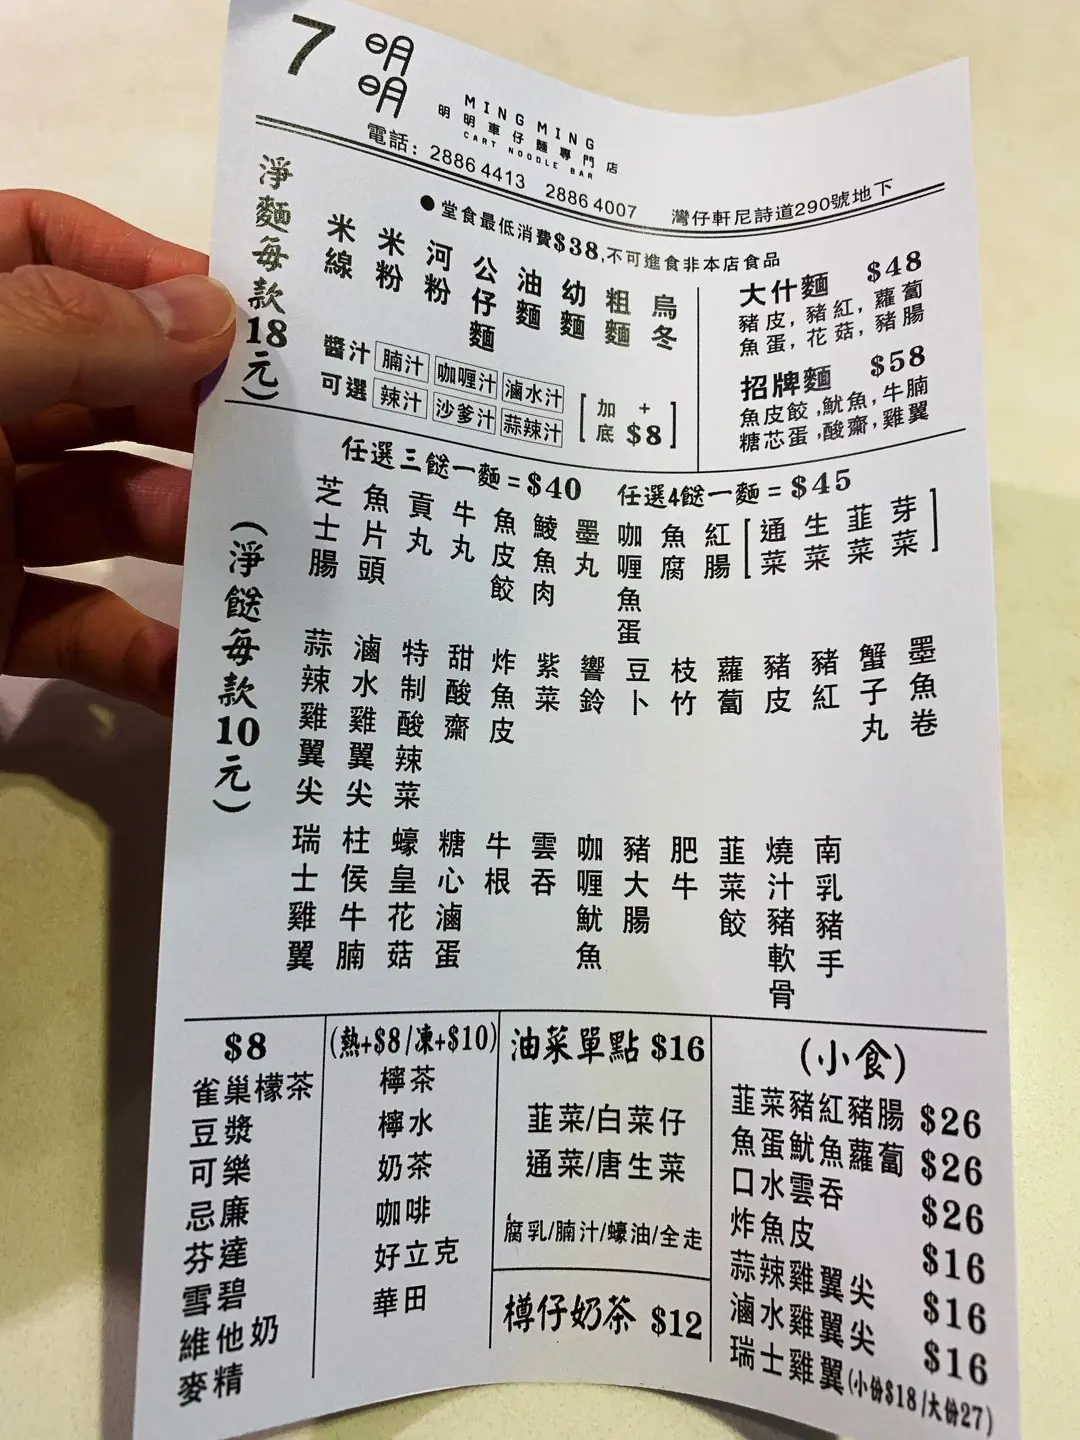 7 明明
MING MING
明明車仔麵專門店
CART NOODLE BAR
電話: 2886 4413 2886 4007 灣仔軒尼詩道290號地下
●堂食最低消費$38,不可進食非本店食品
淨麵每款18元)
米線
米粉
河粉
公仔麵
油麵
幼麵
粗麵
烏冬
醬汁可選
腩汁 咖喱汁 滷水汁
辣汁 沙爹汁 蒜辣汁
[加底 + $8]
大什麵 $48
豬皮,豬紅,蘿蔔
魚蛋,花菇,豬腸
招牌麵 $58
魚皮餃,魷魚,牛腩
糖芯蛋,酸齋,雞翼
任選三餸一麵=$40 任選4餸一麵=$45
(淨餸每款10元)
芝士腸
魚片頭
貢丸
牛丸
魚皮餃
鯪魚肉
墨丸
咖喱魚蛋
魚腐
紅腸
[通菜
生菜
韮菜
芽菜]
蒜辣雞翼尖
滷水雞翼尖
特制酸辣菜
甜酸齋
炸魚皮
紫菜
響鈴
豆卜
枝竹
蘿蔔
豬皮
豬紅
蟹子丸
墨魚卷
瑞士雞翼
柱侯牛腩
蠔皇花菇
糖心滷蛋
牛根
雲吞
咖喱魷魚
豬大腸
肥牛
韮菜餃
燒汁豬軟骨
南乳豬手
$8
雀巢檬茶
豆漿
可樂
忌廉
芬達
雪碧
維他奶
麥精
(熱+$8/凍+$10)
檸茶
檸水
奶茶
咖啡
好立克
華田
油菜單點 $16
韮菜/白菜仔
通菜/唐生菜
腐乳/腩汁/蠔油/全走
樽仔奶茶 $12
(小食)
韮菜豬紅豬腸 $26
魚蛋魷魚蘿蔔 $26
口水雲吞 $26
炸魚皮 $16
蒜辣雞翼尖 $16
滷水雞翼尖 $16
瑞士雞翼(小份$18/大份27)